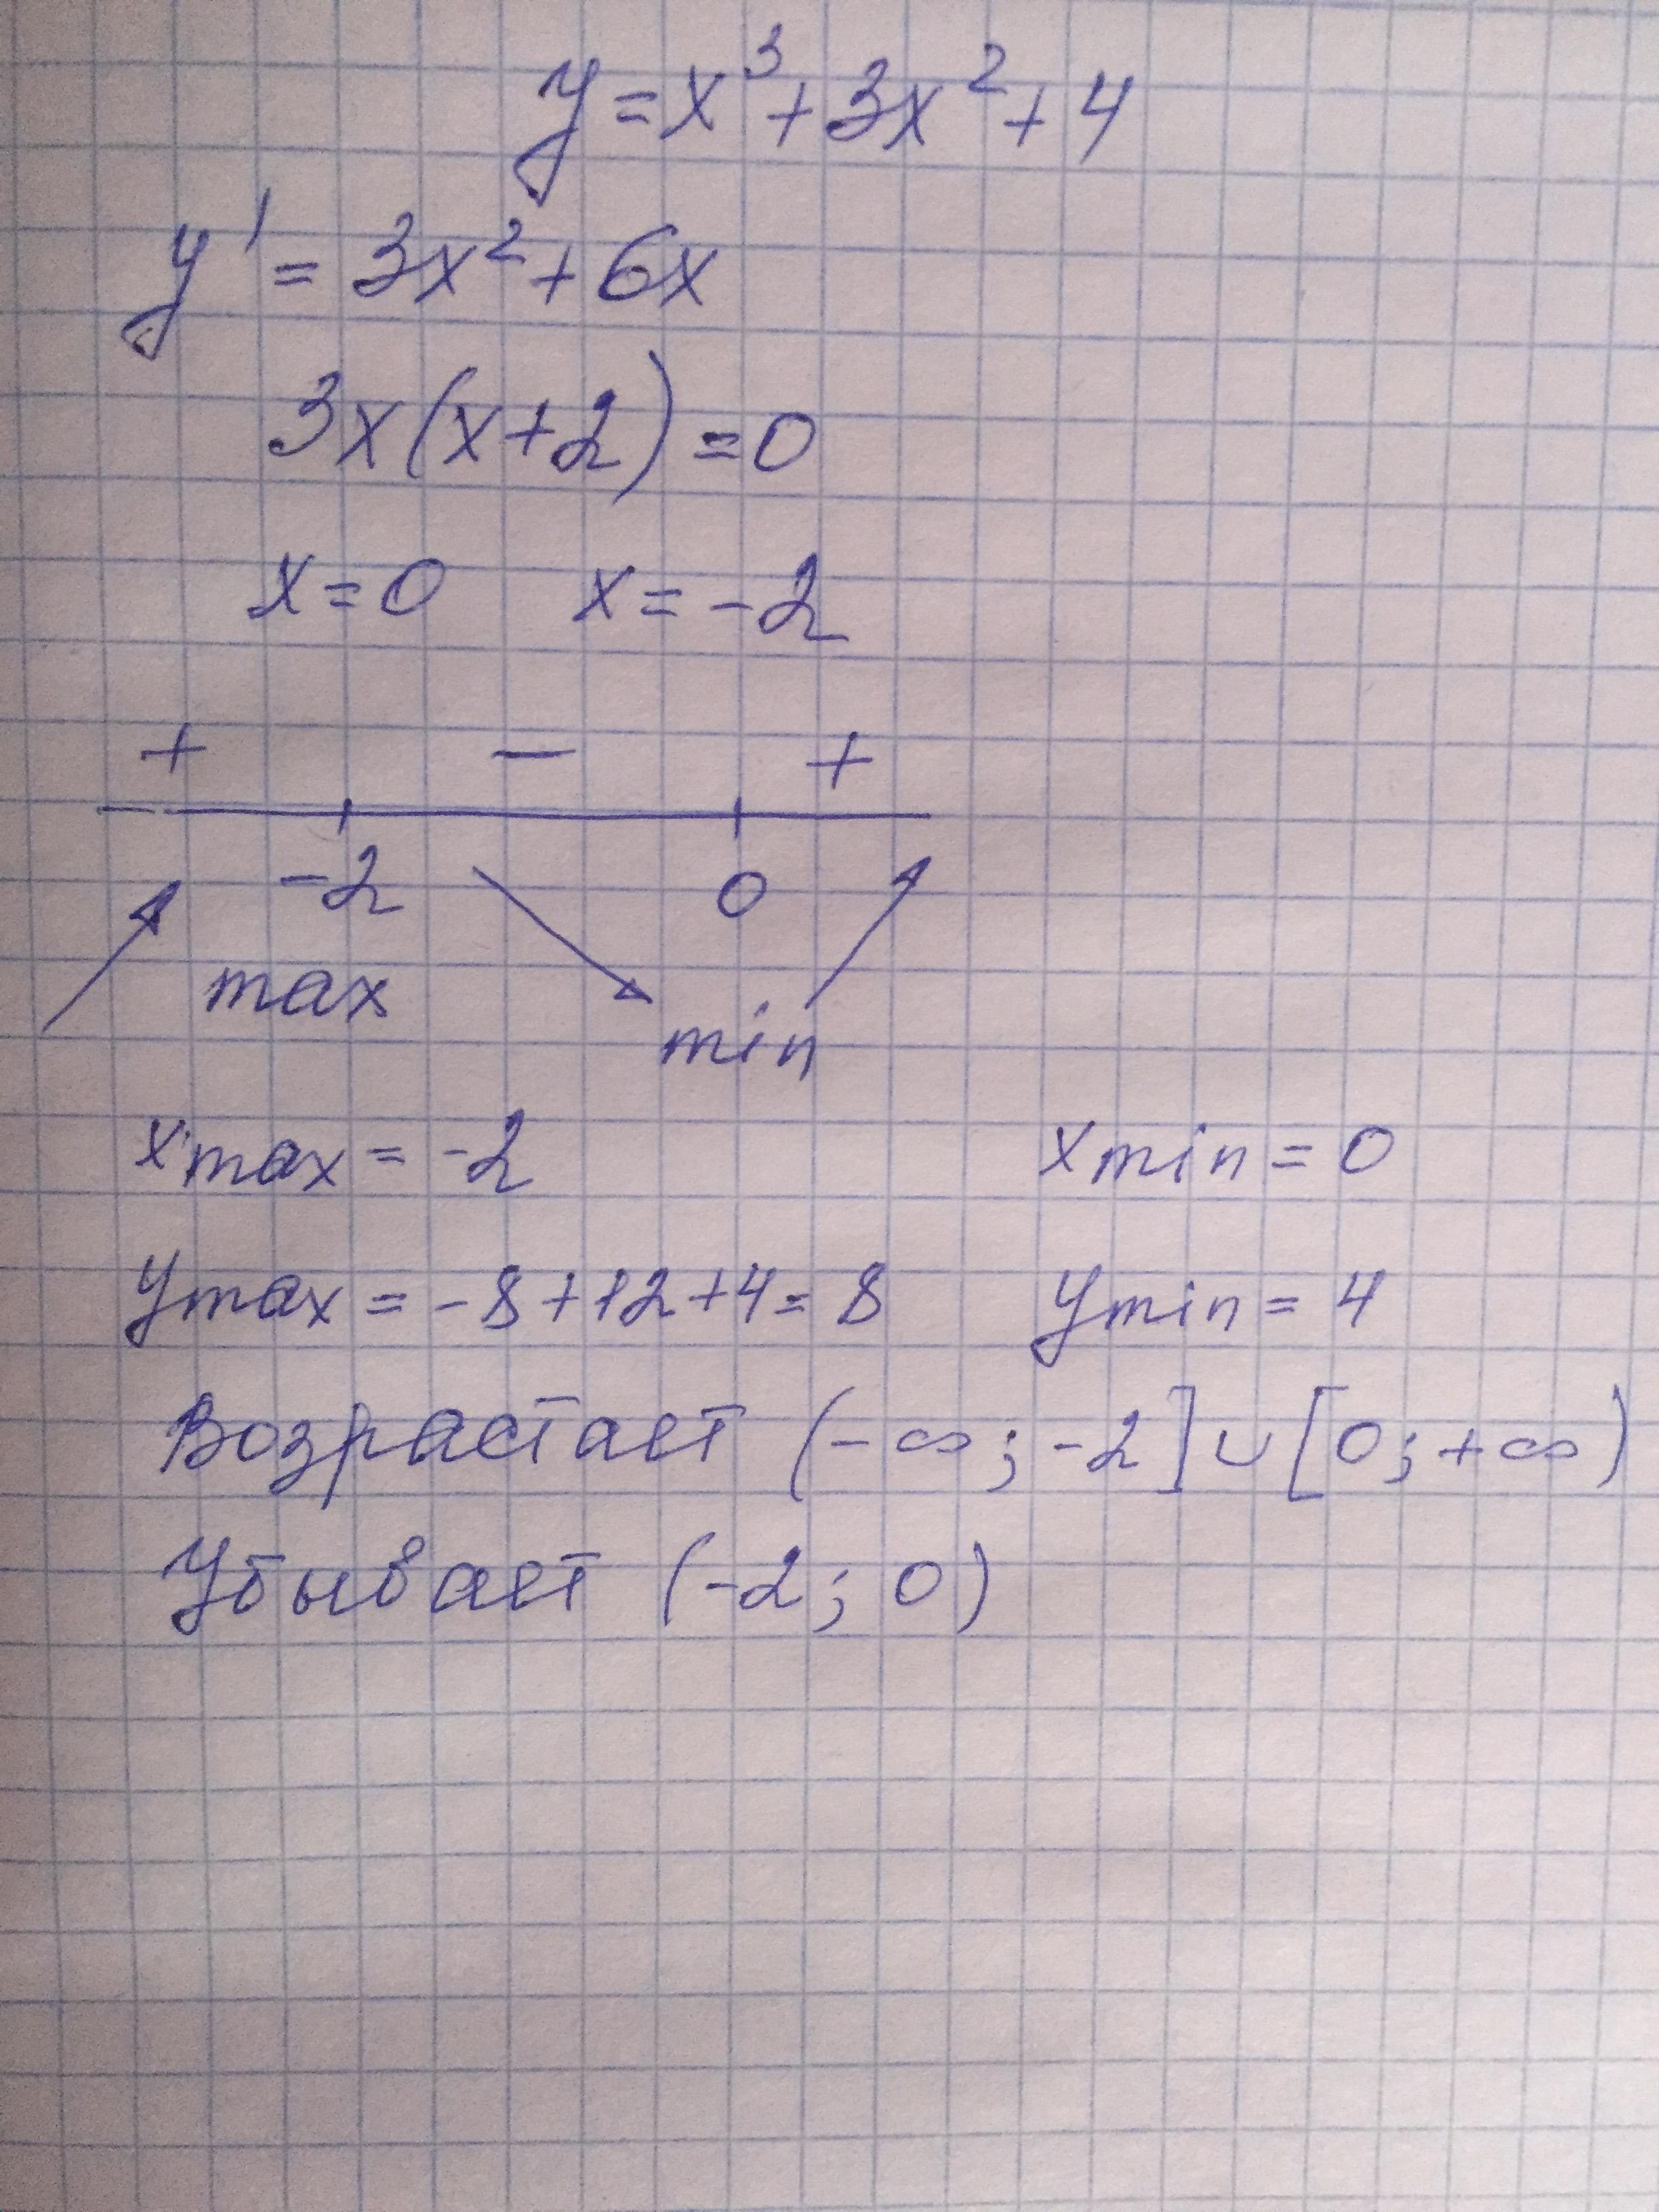 y = x³ + 3x² + 4
y' = 3x² + 6x
3x(x+2) = 0
x = 0 x = -2
+ − +
-2 0
max min
xmax = -2 xmin = 0
ymax = -8+12+4 = 8 ymin = 4
Возрастает (-∞; -2] ∪ [0; +∞)
Убывает (-2; 0)